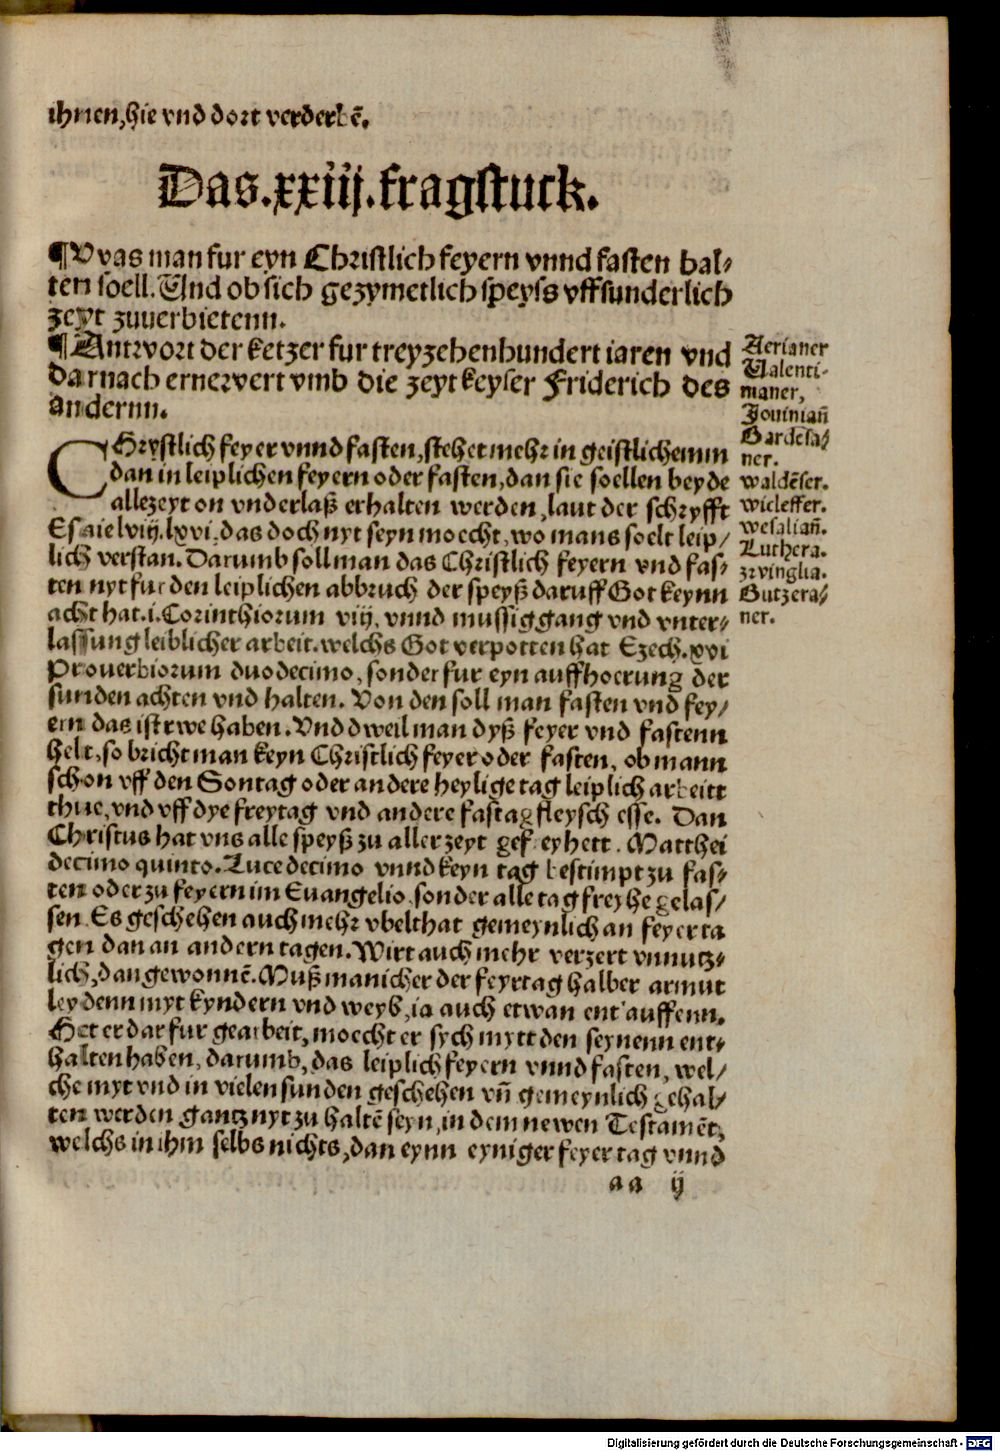 ihnen,hie vnd dort verderbē.
Das.xxiij.fragstuck.
¶Vvas man fur eyn Christlich feyern vnnd fasten hal⸗
ten soell.Und ob sich gezymetlich speyss vffsunderlich
zeyt zuuerbietenn.
¶Antwort der ketzer fur treyzehenhundert iaren vnd
darnach ernewert vmb die zeyt keyser Friderich des
andernn.
CHrystlich feyer vnnd fasten,stehet mehr in geistlichemm
dan in leiplichen feyern oder fasten,dan sie soellen beyde
allezeyt on vnderlaß erhalten werden,laut der schryfft
Esaie lviij.lxvi.das doch nyt seyn moecht,wo mans soelt leip/
lich verstan.Darumb soll man das Christlich feyern vnd fas⸗
ten nyt fur den leiplichen abbruch der speyß daruff Got keynn
acht hat.i.Corinthiorum viij, vnnd mussig gang vnd vnter⸗
lassung leiblicher arbeit.welchs Got verpotten hat Ezech.xvi
Prouerbiorum duodecimo,sonder fur eyn auffhoerung der
sunden achten vnd halten. Von den soll man fasten vnd fey/
ern das ist rwe haben.Vnd dweil man dyß feyer vnd fastenn
helt,so bricht man keyn Christlich feyer oder fasten, ob mann
schon vff den Sontag oder andere heylige tag leiplich arbeitt
thue,vnd vff dye freytag vnd andere fastag fleysch esse. Dan
Christus hat vns alle speyß zu aller zeyt gefreyhett. Matthei
decimo quinto.Luce decimo vnnd keyn tag bestimpt zu fas⸗
ten oder zu feyern im Euangelio,sonder alle tag freyhe gelas/
sen.Es geschehen auch mehr vbelthat gemeynlich an feyerta
gen dan an andern tagen.Wirt auch mehr verzert vnnutz⸗
lich,dan gewonnē.Muß manicher der feyrtag halber armut
leydenn myt kyndern vnd weyb,ia auch etwan entlauffenn.
Het er dar fur gearbeit,moecht er sych mytt den seynenn ent⸗
halten haben, darumb,das leiplich feyern vnnd fasten, wel/
che myt vnd in vielen sunden geschehen vñ gemeynlich gehal/
ten werden gantz nyt zu haltē seyn,in dem newen Testamēt,
welchs in ihm selbs nichts,dan eynn eyniger feyertag vnnd
aa ij
Aerianer
Valenti⸗
nianer,
Jouiniañ
Bardesa/
ner.
waldēser.
wicleffer.
wesaliañ.
Luthera.
zwinglia.
Butzera/
ner.
Digitalisierung gefördert durch die Deutsche Forschungsgemeinschaft - DFG